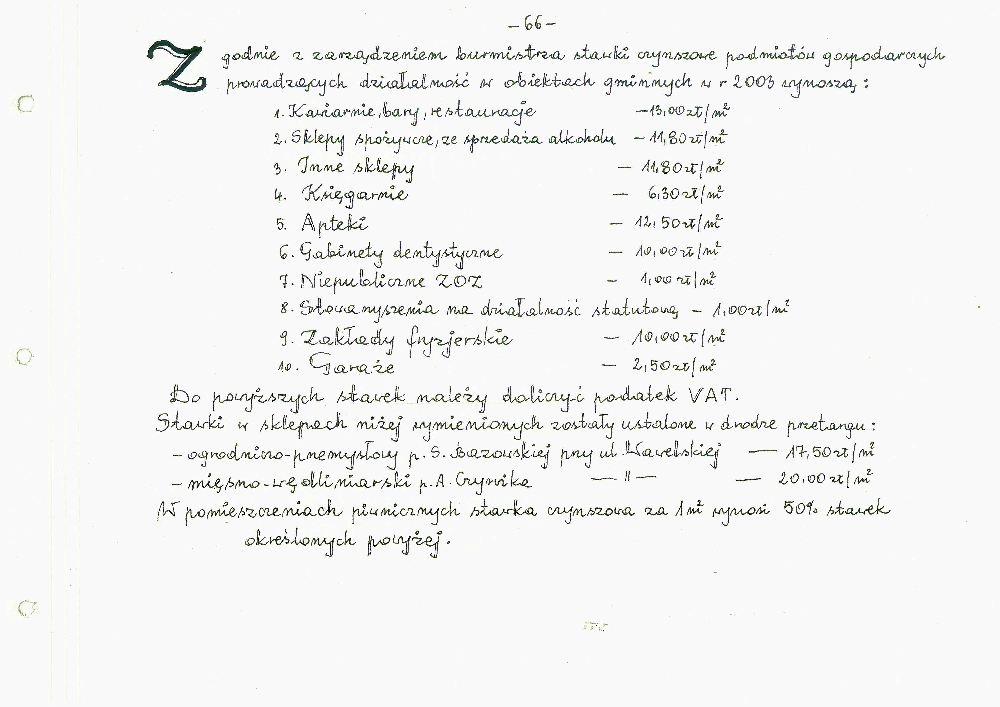 -66-
Zgodnie z zarządzeniem burmistrza stawki czynszowe podmiotów gospodarczych
prowadzących działalność w obiektach gminnych w r 2003 wynoszą:
1. Kawiarnie, bary, restauracje - 13,00 zł/m²
2. Sklepy spożywcze, ze sprzedaża alkoholu - 11,80 zł/m²
3. Inne sklepy - 11,80 zł/m²
4. Księgarnie - 6,30 zł/m²
5. Apteki - 12,50 zł/m²
6. Gabinety dentystyczne - 10,00 zł/m²
7. Niepubliczne ZOZ - 1,00 zł/m²
8. Stowarzyszenia na działalność statutową - 1,00 zł/m²
9. Zakłady fryzjerskie - 10,00 zł/m²
10. Garaże - 2,50 zł/m²
Do powyższych stawek należy doliczyć podatek VAT.
Stawki w sklepach niżej wymienionych zostały ustalone w drodze przetargu:
- ogrodniczo-przemysłowy p. S. Bazowskiej przy ul. Wawelskiej — 17,50 zł/m²
- mięsno-wędliniarski p. A. Czyrnika — " — — 20,00 zł/m²
W pomieszczeniach piwnicznych stawka czynszowa za 1m² wynosi 50% stawek
określonych powyżej.